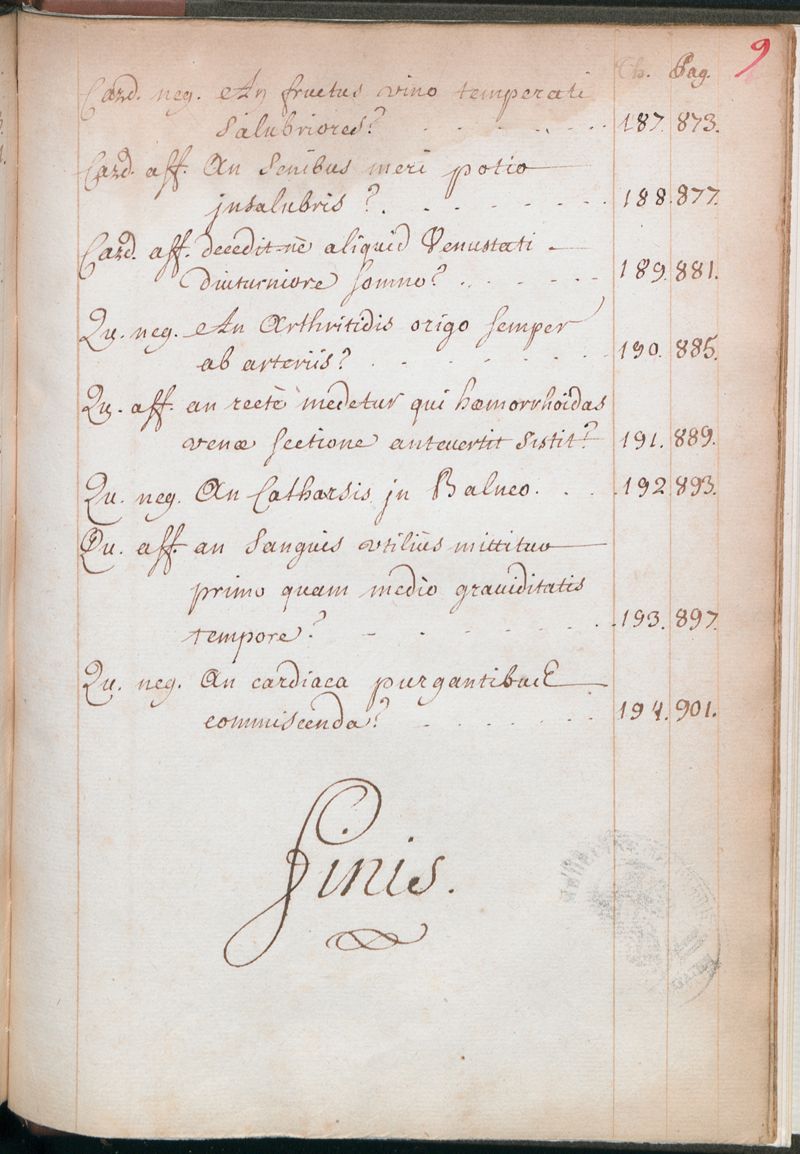 Th. Pag. 9
Card. neg. An fructus vino temperati
salubriores? . . . . . . 187. 873.
Card. aff. An senibus meri potio
jnsalubris ? . . . . . . . 188. 877.
Card. aff. decedit-nè aliquid Venustati
diuturniore somno? . . . . . . 189. 881.
Qu. neg. An Arthritidis origo semper
ab arteriis? . . . . . . . 190. 885.
Qu. aff. an rectè medetur qui hæmorrhoidas
venæ sectione antevertit sistit? 191. 889.
Qu. neg. An Catharsis jn Balneo. . . . 192. 893.
Qu. aff. an sanguis vtiliùs mittitur
primo quam medio grauiditatis
tempore? . . . . . . 193. 897.
Qu. neg. An cardiaca purgantibus
commiscenda? . . . . . . 194. 901.
Finis.